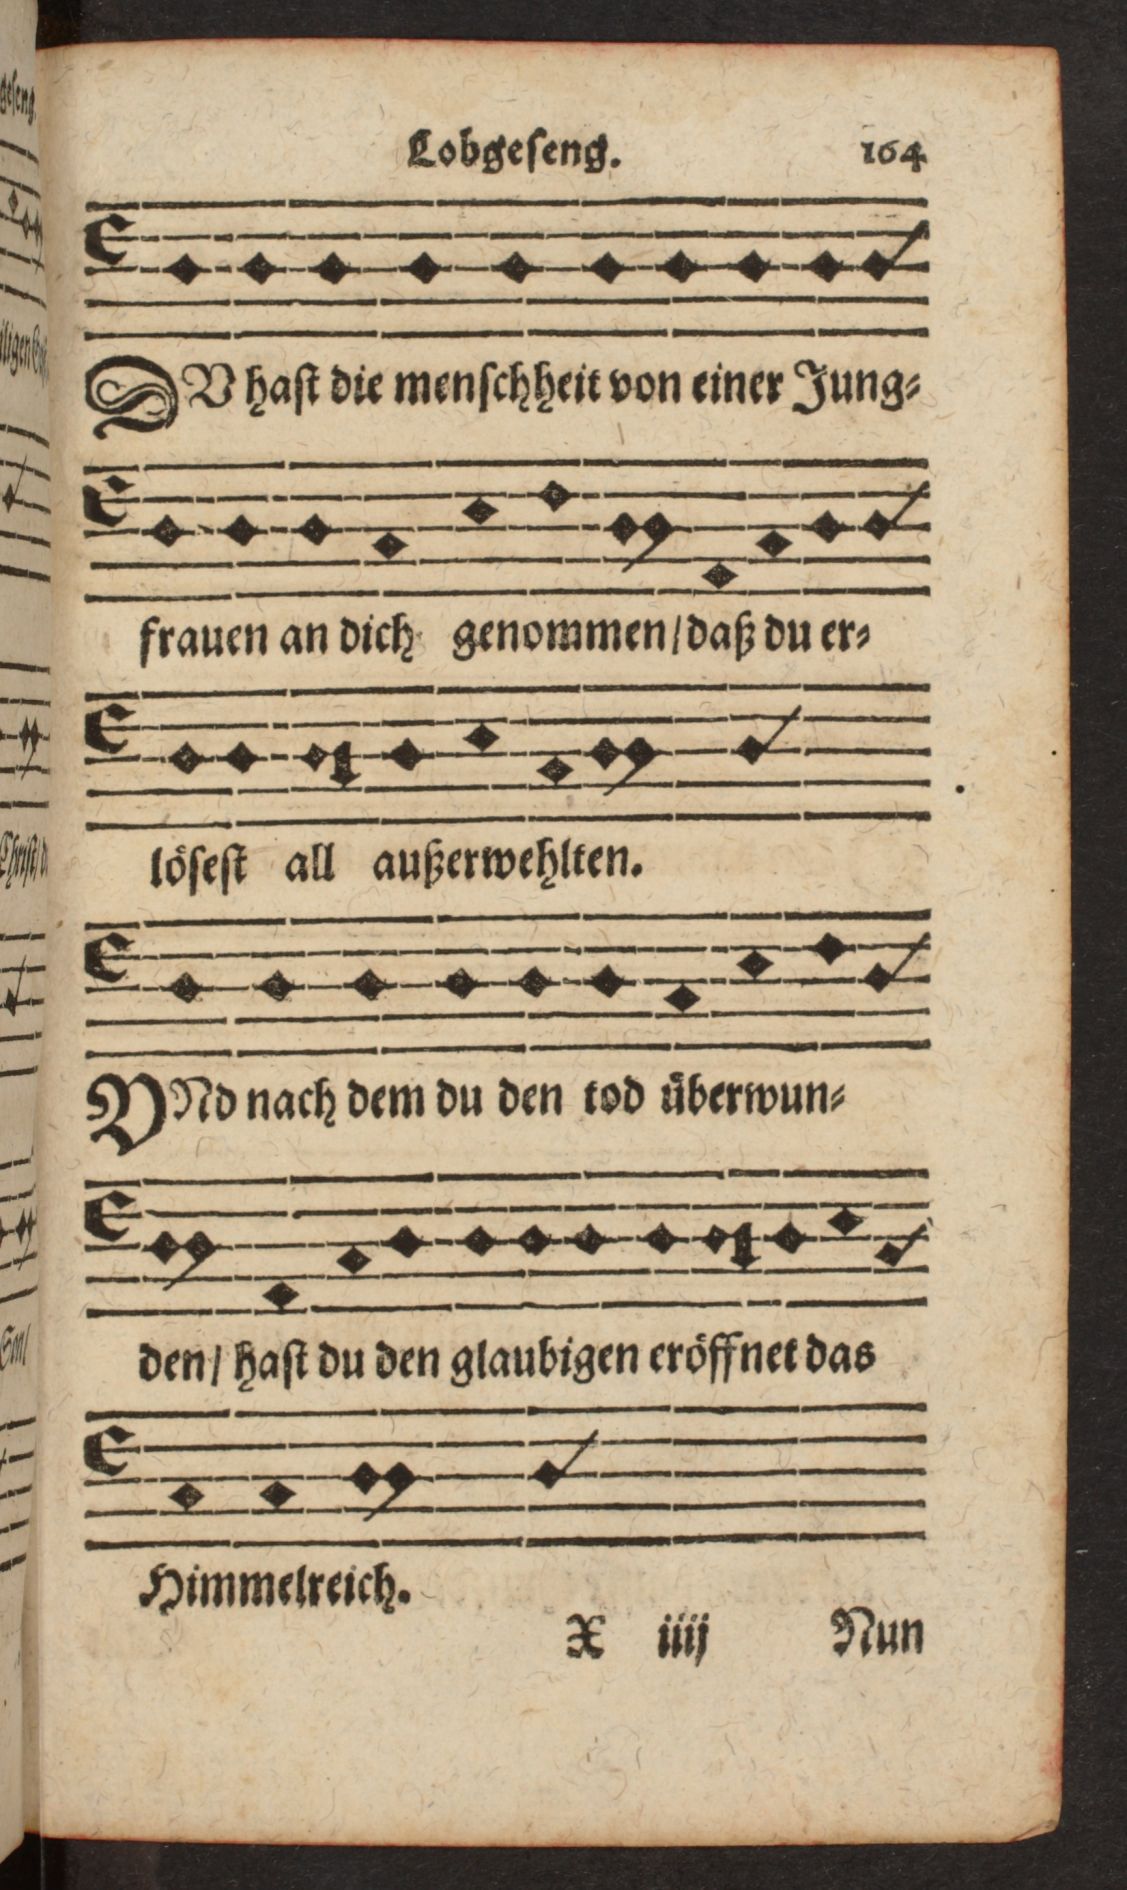 Lobgeseng. 164
DV hast die menschheit von einer Jung⸗
frauen an dich genommen/ daß du er⸗
lösest all außerwehlten.
VNd nach dem du den tod überwun⸗
den/ hast du den glaubigen eröffnet das
Himmelreich.
X iiij Nun